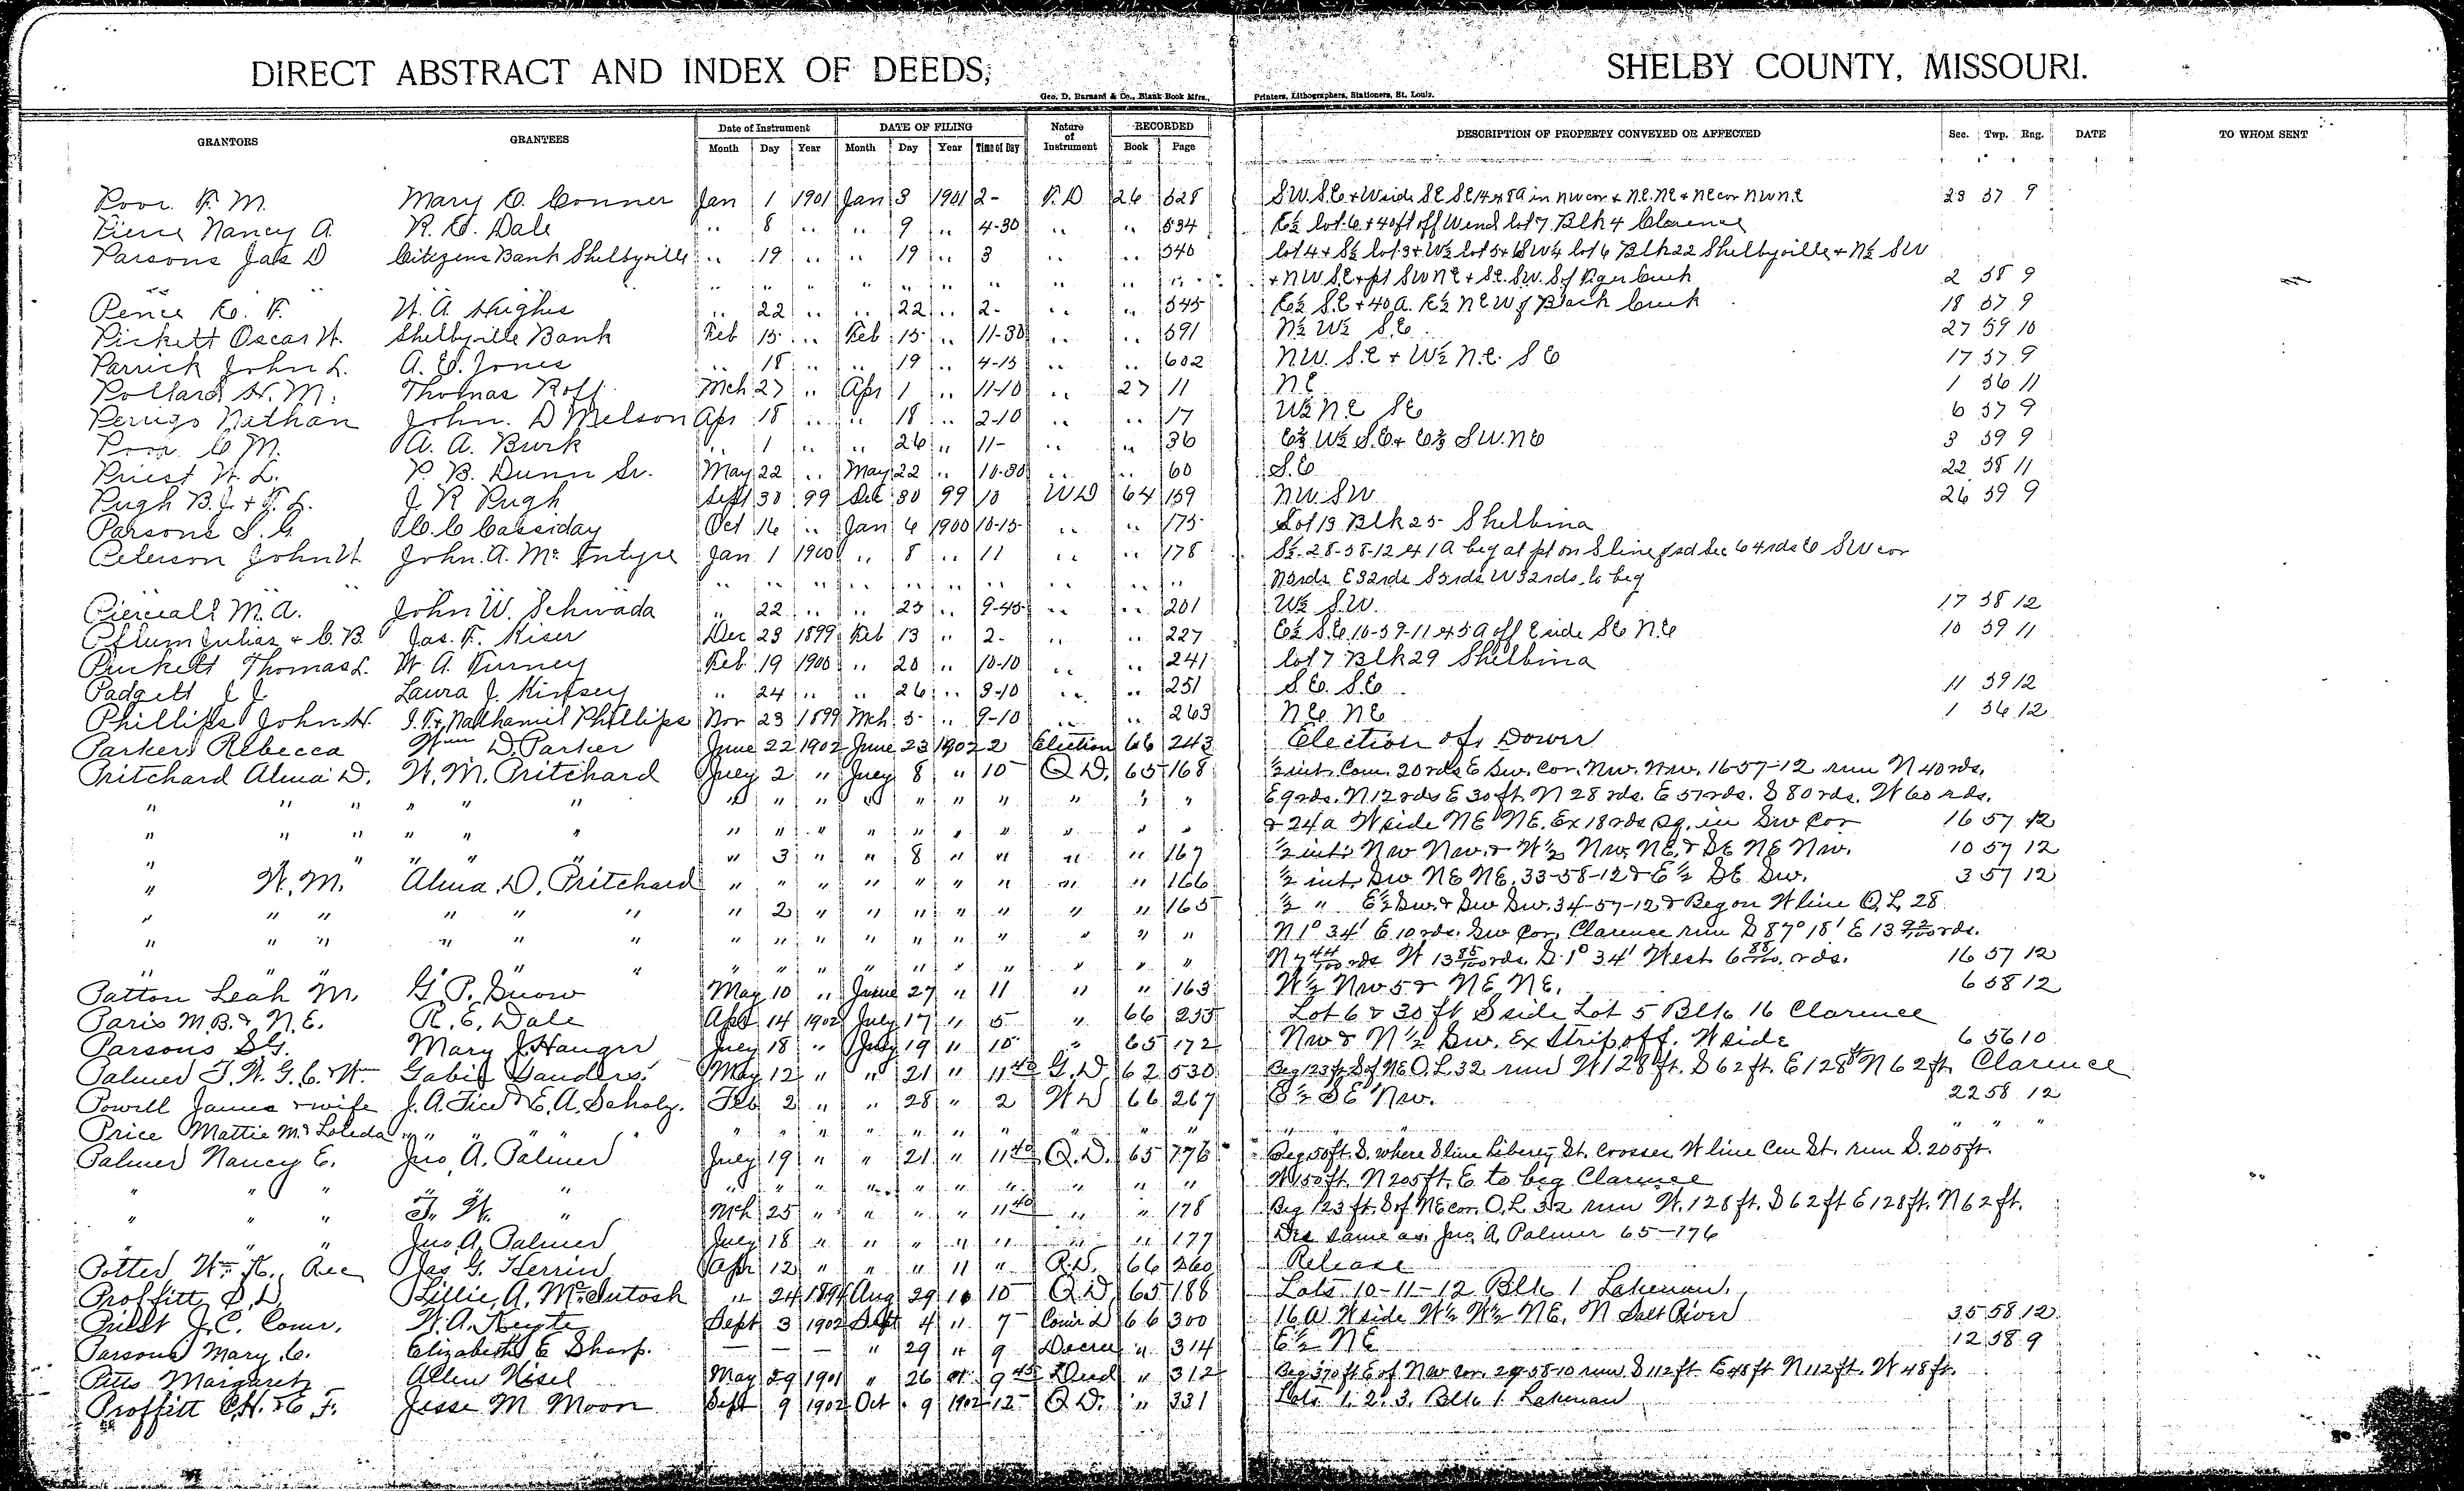 DIRECT ABSTRACT AND INDEX OF DEEDS, SHELBY COUNTY, MISSOURI.
Geo. D. Barnard & Co., Blank Book Mfrs., Printers, Lithographers, Stationers, St. Louis.
GRANTORS GRANTEES Date of Instrument DATE OF FILING Nature of Instrument RECORDED DESCRIPTION OF PROPERTY CONVEYED OR AFFECTED Sec. Twp. Rng. DATE TO WHOM SENT
Month Day Year Month Day Year Time of Day Book Page
Poor F. M. Mary O. Conner Jan 1 1901 Jan 3 1901 2- T.D 26 528 S.W. S.E + W side S.E S.E 14 + 8 A in nw cor + N.E. NE + NE cor NW NE 23 57 9
Pierce Nancy A. R. E. Dale " 8 " " 9 " 4-30 " " 534 E½ lot 6 + 40 ft off W end lot 7 Blk 4 Clarence
Parsons Jas D Citizens Bank Shelbyville " 19 " " 19 " 3 " " 540 lot 4 + S½ lot 3 + W½ lot 5 + SW¼ lot 6 Blk 22 Shelbyville + N½ SW
" " " " " " " " " " " " + NW S.E + pt SW NE + SE. SW. S of Tiger Creek 2 58 9
Pence E. F. W. A. Hughes " 22 " " 22 " 2- " " 545 E½ S.E + 40 A. E½ NE W of Black Creek 18 57 9
Pickett Oscar W. Shelbyville Bank Feb 15 " Feb 15 " 11-30 " " 591 N½ W½ S.E 27 59 10
Parrick John L. A. E. Jones " 18 " " 19 " 4-15 " " 602 N.W. S.E + W½ N.E. S E 17 57 9
Pollard H. M. Thomas Roff Mch 27 " Apr 1 " 11-10 " 27 11 NE 1 56 11
Perrigo Nathan John D Melson Apr 18 " " 18 " 2-10 " " 17 W½ N.E SE 6 57 9
Poor C M. A. A. Burk " 1 " " 26 " 11- " " 36 E½ W½ S.E + E½ S W. NE 3 59 9
Priest W. L. P. B. Dunn Sr. May 22 " May 22 " 10-30 " " 60 S.E 22 58 11
Pugh B. J. + F. L. J R Pugh Sept 30 99 Dec 30 99 10 W D 64 159 NW. SW 26 59 9
Parsons S. G. C. C Cassiday Oct 16 " Jan 6 1900 10-15 " " 175 Lot 13 Blk 25 Shelbina
Peterson John W. John. A. McIntyre Jan 1 1900 " 8 " 11 " " 178 S½ 28-58-12 + 1 A beg at pt on S line of sd Sec 64 rds E SW cor
" " " " " " " " " " " " N 5 rds E 32 rds S 5 rds W 32 rds to beg
Pierceall M. A. John W. Schwada " 22 " " 23 " 9-45 " " 201 W½ S.W. 17 58 12
Julias + C. B. Jas. F. Kiser Dec 23 1899 Feb 13 " 2- " " 227 E½ S.E 10-59-11 + 5 A off E side SE N.E 10 59 11
Puckett Thomas L. W. A. Turney Feb 19 1900 " 20 " 10-10 " " 241 lot 7 Blk 29 Shelbina
Padgett J J. Laura J. Kimsey " 24 " " 26 " 9-10 " " 251 S.E. S.E 11 59 12
Phillips John H. Nathaniel Phillips Nov 23 1899 Mch 5 " 9-10 " " 263 NE NE 1 56 12
Parker Rebecca Wm D. Parker June 22 1902 June 23 1902 2 Election 66 243 Election of Dower
Pritchard Alma D. W. M. Pritchard July 2 " July 8 " 10 Q.D. 65 168 ½ int. Com. 20 rds E Sw. Cor. Nw. Nw. 16-57-12 run N 40 rds.
" " " " " " " " " " " " " " " " E 9 rds. N 12 rds E 30 ft. N 28 rds. E 57 rds. S 80 rds. W 60 rds.
" " " " " " " " " " " " " " " " & 24 a W side NE NE. Ex 18 rds sq. in Sw Cor 16 57 12
" " " " " " 3 " " 8 " " " " 167 ½ int. Nw Nw. & W½ Nw, NE, & SE NE Nw. 10 57 12
" W. M. Alma D. Pritchard " " " " " " " " " 166 ½ int. Sw NE NE, 33-58-12 & E½ SE Sw. 3 57 12
" " " " " " " 2 " " " " " " " 165 ½ " E½ Sw. & Sw Sw. 34-57-12 & Beg on W line O. L 28
" " " " " " " " " " " " " " " " N 1° 34' E 10 rds. Sw Cor. Clarence run S 87° 18' E 13 rds.
" " " " " " " " " " " " " " " N 7 44/100 rds W 13 85/100 rds. S 1° 34' West 6 88/100 rds. 16 57 12
Patton Leah M. G. P. Snow May 10 " June 27 " 11 " " 163 W½ Nw 5 & NE NE. 6 58 12
Paris M. B. & N. E. R. E. Dale Apr 14 1902 July 17 " 5 " 66 255 Lot 6 & 30 ft S side Lot 5 Blk 16 Clarence
Parsons S G. Mary J. Hanger July 18 " July 19 " 10 " 65 172 Nw & N½ Sw. Ex Strip off. W side 6 56 10
Palmer T. W. G. C. & Wm Gabie Sanders. May 12 " " 21 " 11 40 G. D 62 530 Beg 123 ft S of NE O. L. 32 run W 128 ft. S 62 ft. E 128 ft N 62 ft. Clarence
Powell James & wife J. A. Tice & E. A. Scholz. Feb 2 " " 28 " 2 W D 66 267 S½ SE Nw. 22 58 12
Price Mattie M. & Loleda " " " " " " " " " " " " " " " " "
Palmer Nancy E. Jno. A. Palmer July 19 " " 21 " 11 40 Q. D. 65 176 Beg 50 ft. S. where S line Liberty St. crosses W line Cen St. run S. 205 ft.
" " " " " " " " " " " " " " " " W 150 ft. N 205 ft. E to beg Clarence
" " " T. W. " Mch 25 " " " " 11 40 " " 178 Beg 123 ft. S of NE cor. O. L. 32 run W. 128 ft. S 62 ft E 128 ft. N 62 ft.
" " " Jno. A. Palmer July 18 " " " " " " " 177 Des same as Jno. A. Palmer 65-176
Potter Wm H., Rec Jas G. Herrin Apr 12 " " " " " R.D. 66 260 Release
Proffitt, S. D. Lillie A. McIntosh " 24 1894 Aug 29 " 10 Q D 65 188 Lots 10-11-12 Blk 1 Lakenan.
Priest J. C. Comr. W. A. Keyte Sept 3 1902 Sept 4 " 7 Com'r D 66 300 16 A W side W½ W½ NE, N Salt River 35 58 12
Parsons Mary C. Elizabeth E Sharp. — — — " 29 " 9 Decree " 314 E½ NE 12 58 9
Pitts Margaret Allen Kisel May 29 1901 " 26 " 9 45 Deed " 312 Beg 370 ft E of Nw Cor. 29-58-10 run S 112 ft E 48 ft N 112 ft. W 48 ft.
Proffitt C. H. & E. F. Jesse M Moon Sept 9 1902 Oct 9 1902 12 Q D. " 331 Lots 1. 2. 3. Blk 1 Lakenan